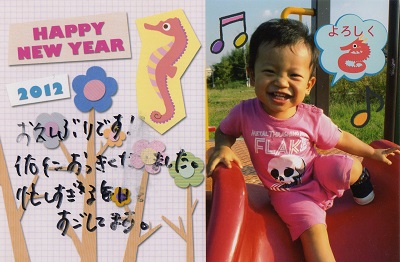 HAPPY
NEW YEAR
2012
おひさしぶりです!
大きくなりました。
忙しすぎる毎日
すごしてます。
よろしく
FLAKE